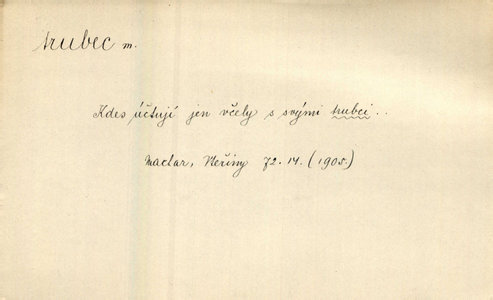 trubec m.
Kdes účtují jen včely s svými trubci..
Machar, Vteřiny 72.14. (1905.)